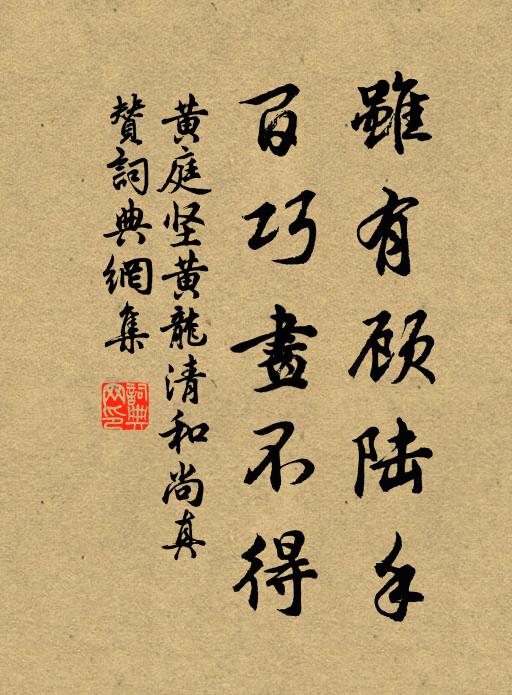 雖有顾陆手
百巧畫不得
黄庭坚黄龍清和尚真
贊詞典網集
詞典网印